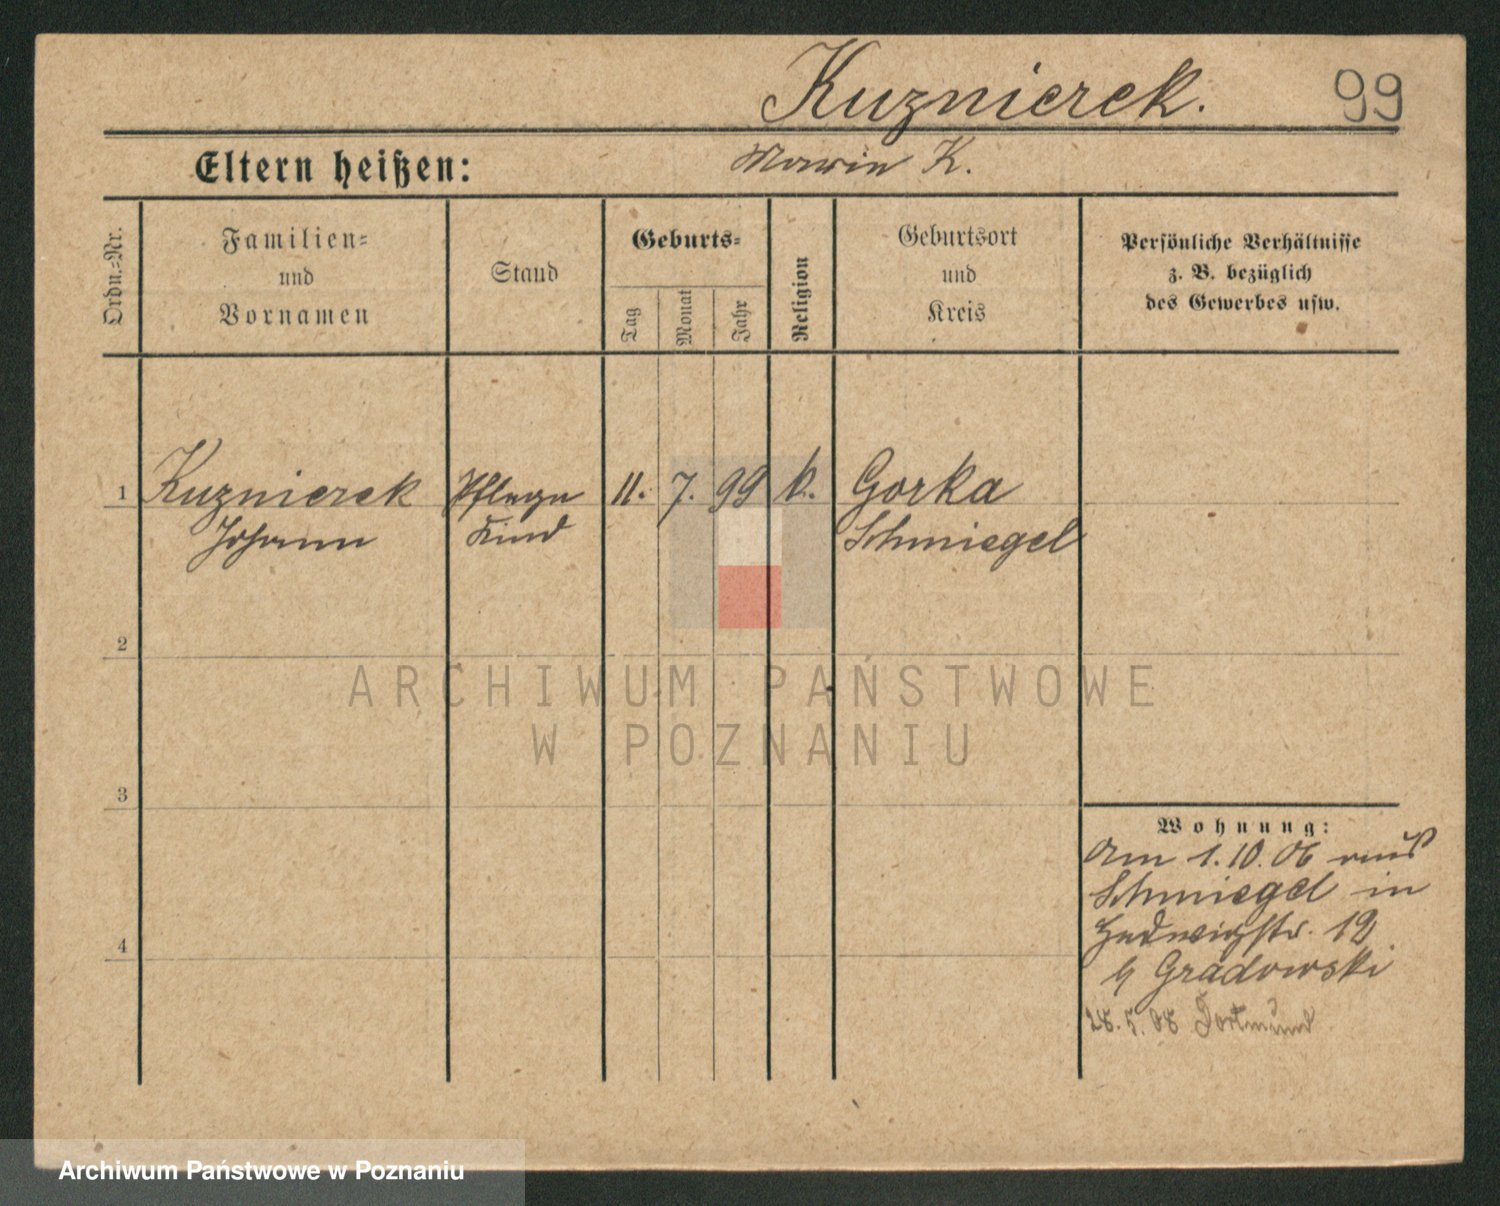 Kuznierek. 99
Eltern heißen: Marie K.
Ordn.-Nr.
Familien-
und
Vornamen
Stand
Geburts-
Tag
Monat
Jahr
Religion
Geburtsort
und
Kreis
Persönliche Verhältnisse
z. B. bezüglich
des Gewerbes usw.
1 Kuznierek Pflege 11. 7. 99 k. Gorka
Johann Kind Schmiegel
2
ARCHIWUM PAŃSTWOWE
W POZNANIU
3
Wohnung:
Am 1.10.06 aus
Schmiegel in
Hedwigstr. 12
4
b Gradowski
28.5.08 Dortmund
Archiwum Państwowe w Poznaniu